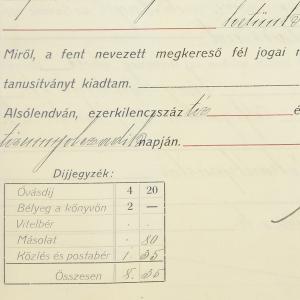 betünk
Miről, a fent nevezett megkereső fél jogai
tanusítványt kiadtam.
Alsólendván, ezerkilenczszáz tíz
napján.
Díjjegyzék:
Óvásdíj 4 20
Bélyeg a könyvön 2 —
Vitelbér . .
Másolat . 80
Közlés és postabér 1 35
Összesen 8. 35